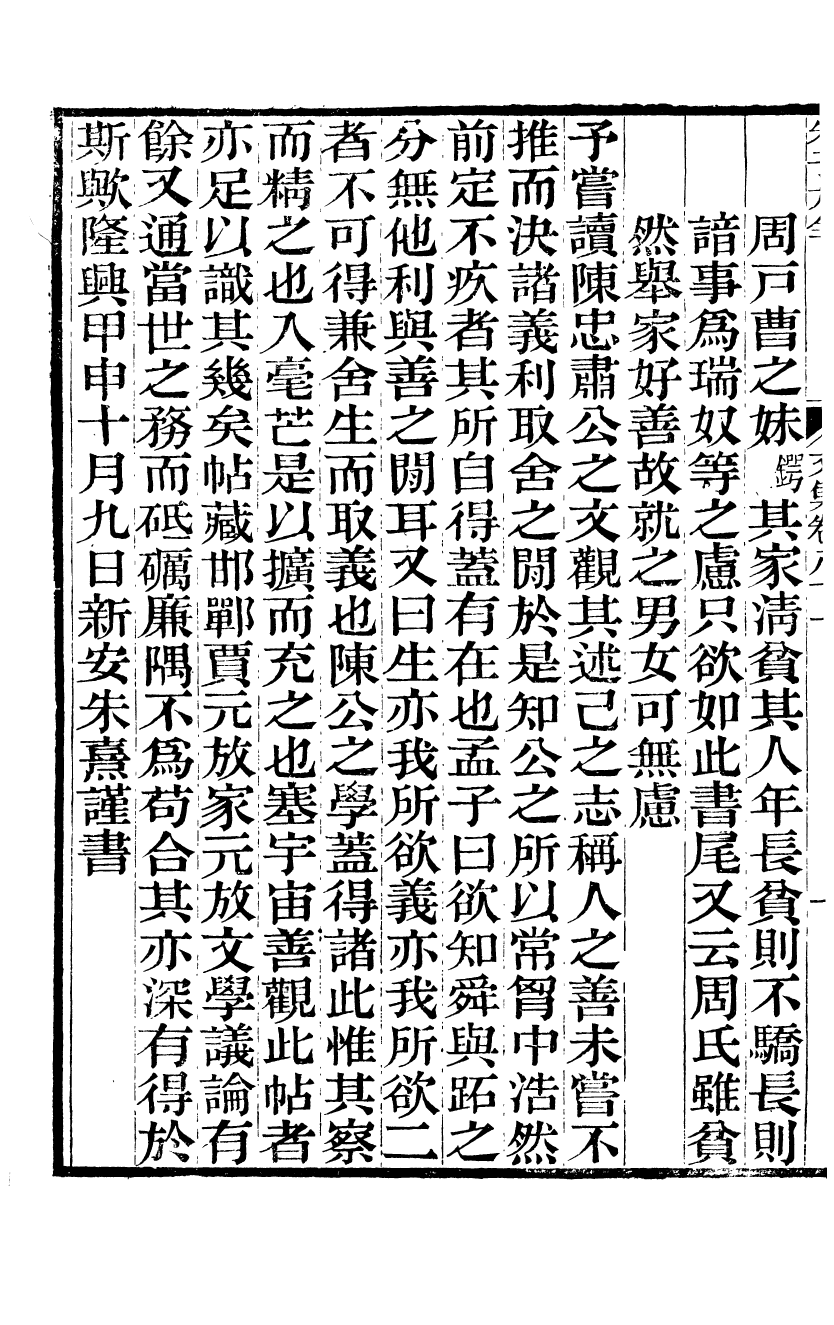 周戸曹之妹鍔其家淸貧其人年長貧則不驕長則
諳事爲瑞奴等之慮只欲如此書尾又云周氏雖貧
然舉家好善故就之男女可無慮
予嘗讀陳忠肅公之文觀其述己之志稱人之善未嘗不
推而決諸義利取舍之閒於是知公之所以常胷中浩然
前定不疚者其所自得蓋有在也孟子曰欲知舜與跖之
分無他利與善之閒耳又曰生亦我所欲義亦我所欲二
者不可得兼舍生而取義也陳公之學蓋得諸此惟其察
而精之也入毫芒是以擴而充之也塞宇宙善觀此帖者
亦足以識其幾矣帖藏邯鄲賈元放家元放文學議論有
餘又通當世之務而砥礪廉隅不爲苟合其亦深有得於
斯歟隆興甲申十月九日新安朱熹謹書